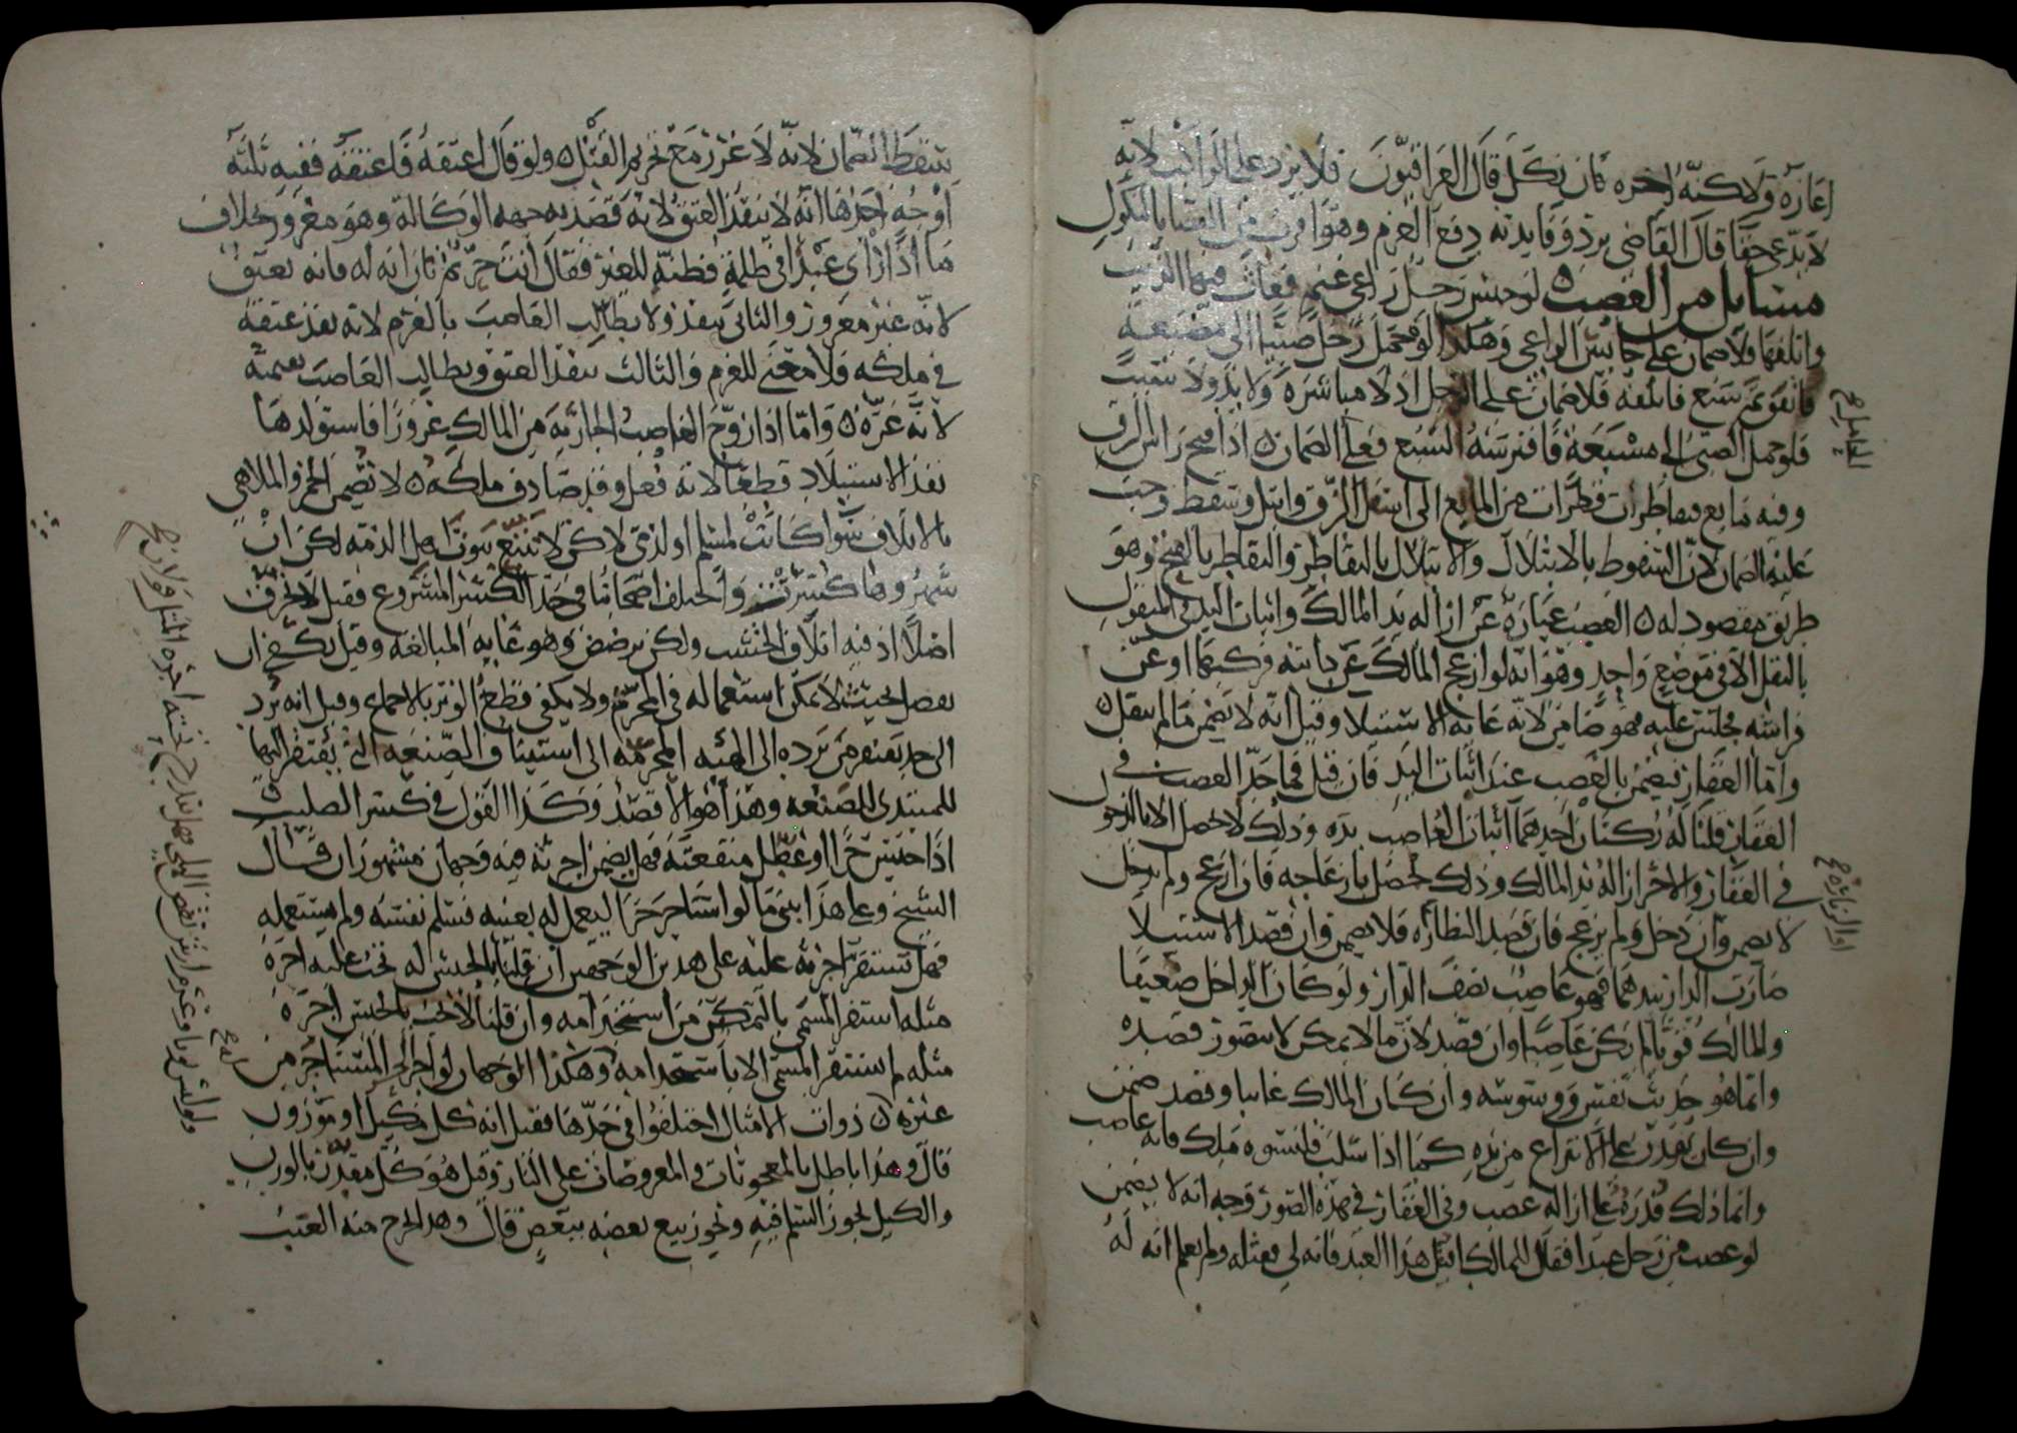 اعاره ولاكنه اجره فان نكل قال العراقيون فلا يرد على الراكب لانه
لا يدعي حقا قال القاضي يرد وفايدته دفع الغرم وهو اقرب من القضا بالنكول
مسايل من الغصب لو حبس رجل راعي غنم فعاث فيها الذيب
واتلفها فلا ضمان على حابس الراعي وهكذا لو حمل رجل صبيا الى مضيعة
فاتفق ثم سبع فاتلفه فلا ضمان على الرجل اذ لا مباشرة ولا يد ولا تسبيب
فلو حمل الصبي الى مسبعة فافترسه السبع فعليه الضمان اذا فتح راس الزق
وفيه مايع فتقاطرت قطرات من المايع الى اسفل الزق وابتل وسقط وجب
عليه الضمان لان السقوط بالابتلال والابتلال بالتقاطر والتقاطر بالفتح وهو
طريق مقصود له الغصب عبارة عن ازاله يد المالك واثبات اليد في المنقول
بالنقل الا في موضع واحد وهو انه لو ازعج المالك عن دابته فركبها او عن
فراشه فجلس عليه فهو ضامن لانه غاية الاستيلا وقيل انه لا يضمن ما لم ينقل
واما العقار فيضمن بالغصب عند اثبات اليد فان قيل فما حد الغصب في
العقار قلنا له ركنان احدهما اثبات الغاصب يده وذلك لا يحصل الا بالدخول
في العقار والاخر ازاله يد المالك وذلك يحصل بازعاجه فان ازعج ولم يدخل
لا يضمن وان دخل ولم يزعج فان قصد النظاره فلا يضمن وان قصد الاستيلا
صارت الدار بيدهما فهو غاصب نصف الدار ولو كان الداخل ضعيفا
والمالك قويا لم يكن غاصبا وان قصد لان ما لا يمكن لا يتصور قصده
وانما هو حديث نفس ووسوسه وان كان المالك غايبا وقصد ضمن
وان كان يقدر على الانتزاع من يده كما اذا سلب قلنسوه ملك فانه غاصب
وانما ذلك قدرة على ازاله غصب وفي العقار في هذه الصور وجه انه لا يضمن
لو غصب من رجل عبدا فقال للمالك اقتل هذا العبد فانه لي فقتله ولم يعلم انه له
او الزيارة صح
يسقط الضمان لانه لا غرر مع تحريم القتل ولو قال اعتقه فاعتقه ففيه ثلثه
اوجه احدها انه لا ينفذ العتق لانه قصد به جهه الوكالة وهو مغرور بخلاف
ما اذا راى عبدا في ظلمة فظنه للغير فقال انت حر ثم بان انه له فانه يعتق
لانه غير مغرور والثاني ينفذ ولا يطالب الغاصب بالغرم لانه نفذ عتقه
في ملكه فلا معنى للغرم والثالث ينفذ العتق ويطالب الغاصب بقيمته
لانه غره واما اذا زوج الغاصب الجارية من المالك غرورا فاستولدها
نفذ الاستيلاد قطعا لانه فعل وقد صادف ملكه لا تضمن الخمر والملاهي
بالاتلاف سوا كانت لمسلم او لذمي لاكن لا نتبع بيوت اهل الذمه لكن ان
شهروها كسرت واختلف اصحابنا في حد الكسر المشروع فقيل لا يحرق
اصلا اذ فيه اتلاف الخشب ولكن يرضض وهو غاية المبالغه وقيل يكفي ان
يفصل بحيث لا يمكن استعماله في المحرم ولا يكفي قطع الوتر بالاجماع وقيل انه يرد
الى حد يفتقر من يرده الى الهيئه المحرمه الى استيناف الصنعه التي يفتقر اليها
المبتدي للصنعه وهذا هو الاقصد وكذا القول في كسر الصليب
اذا حبس حرا او عطل منفعته فهل يضمن اجرته فيه وجهان مشهوران قال
الشيخ وعلى هذا يبتني ما لو استاجر حرا ليعمل له بعينه فسلم نفسه ولم يستعمله
فهل تستقر اجرته عليه على هذين الوجهين ان قلنا بالحبس له تجب عليه اجرة
مثله استقر المسمى بالتمكن من استخدامه وان قلنا لا تجب بالحبس اجرة
مثله لم يستقر المسمى الا باستخدامه وهكذا الوجهان لو اجر الحر المستاجر من
غيره ذوات الامثال اختلفوا في حدها فقيل انه كل مكيل او موزون
قال وهذا باطل بالمعجونات والمعروضات على النار وقيل هو كل مقدر بالوزن
والكيل يجوز السلم فيه ويجوز بيع بعضه ببعض قال وهذا يخرج منه العنب